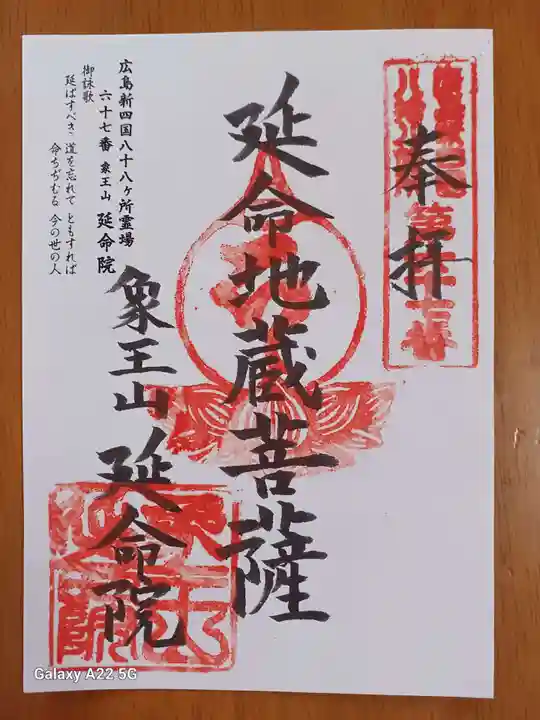 奉拝
延命地蔵菩薩
象王山 延命院
広島新四国八十八ヶ所霊場
六十七番 象王山 延命院
御詠歌
延ばすべき 道を忘れて ともすれば
命ちぢむる 今の世の人
Galaxy A22 5G